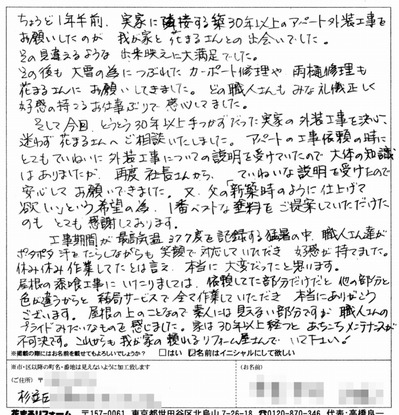 ちょうど1年半前、実家に隣接する築30年以上のアパート外装工事を
お願いしたのが 我が家と花まるさんとの出会いでした。
その見違えるような 出来映えに大満足でした。
その後も 大雪の為につぶれた カーポート修理や 雨樋修理も
花まるさんに お願いしてきました。どの職人さんも みな礼儀正しく
好感の持てるお仕事ぶりで 感心してました。
そして今回、とうとう30年以上手つかずだった実家の外装工事を決心、
迷わず 花まるさんへ ご相談いたしました。アパートの工事依頼の時に
とてもていねいに 外装工事についての説明を受けていたので 大体の知識
はありましたが、再度 社長さんから、ていねいな説明を受けたので
安心して お願いできました。又、父の「新築時のように仕上げて
欲しい」という希望の為、1番ベストな塗料を ご提案していただけた
のも とても感謝しております。
工事期間が 最高気温 37.7度を記録する猛暑の中、職人さん達が
ポタポタ汗をたらしながらも 笑顔で対応していただき 好感が持てました。
休み休み作業してたとは言え、本当に 大変だったと思います。
屋根の葺替工事に いたりましては、依頼してた部分だけだと 他の部分と
色が違うからと 特別サービスで 全て作業していただき 本当にありがとう
ございます。屋根の上のことなので 素人には見えない部分ですが 職人さんの
プライドみたいなものを感じました。家は30年以上経つと あちこちメンテナンスが
不可欠です。これからも 我が家の頼れるリフォーム屋さんで いて下さい!
※掲載の際にはお名前を載せてもよろしいでしょうか? □はい ☑名前はイニシャルにして欲しい
※市・区以降の町名・番地は見えないように加工致します
(ご住所) 〒
(お名前)
杉並区
花まるリフォーム 〒157-0061 東京都世田谷区北烏山7-26-18 ☎0120-870-346 代表:高橋良一